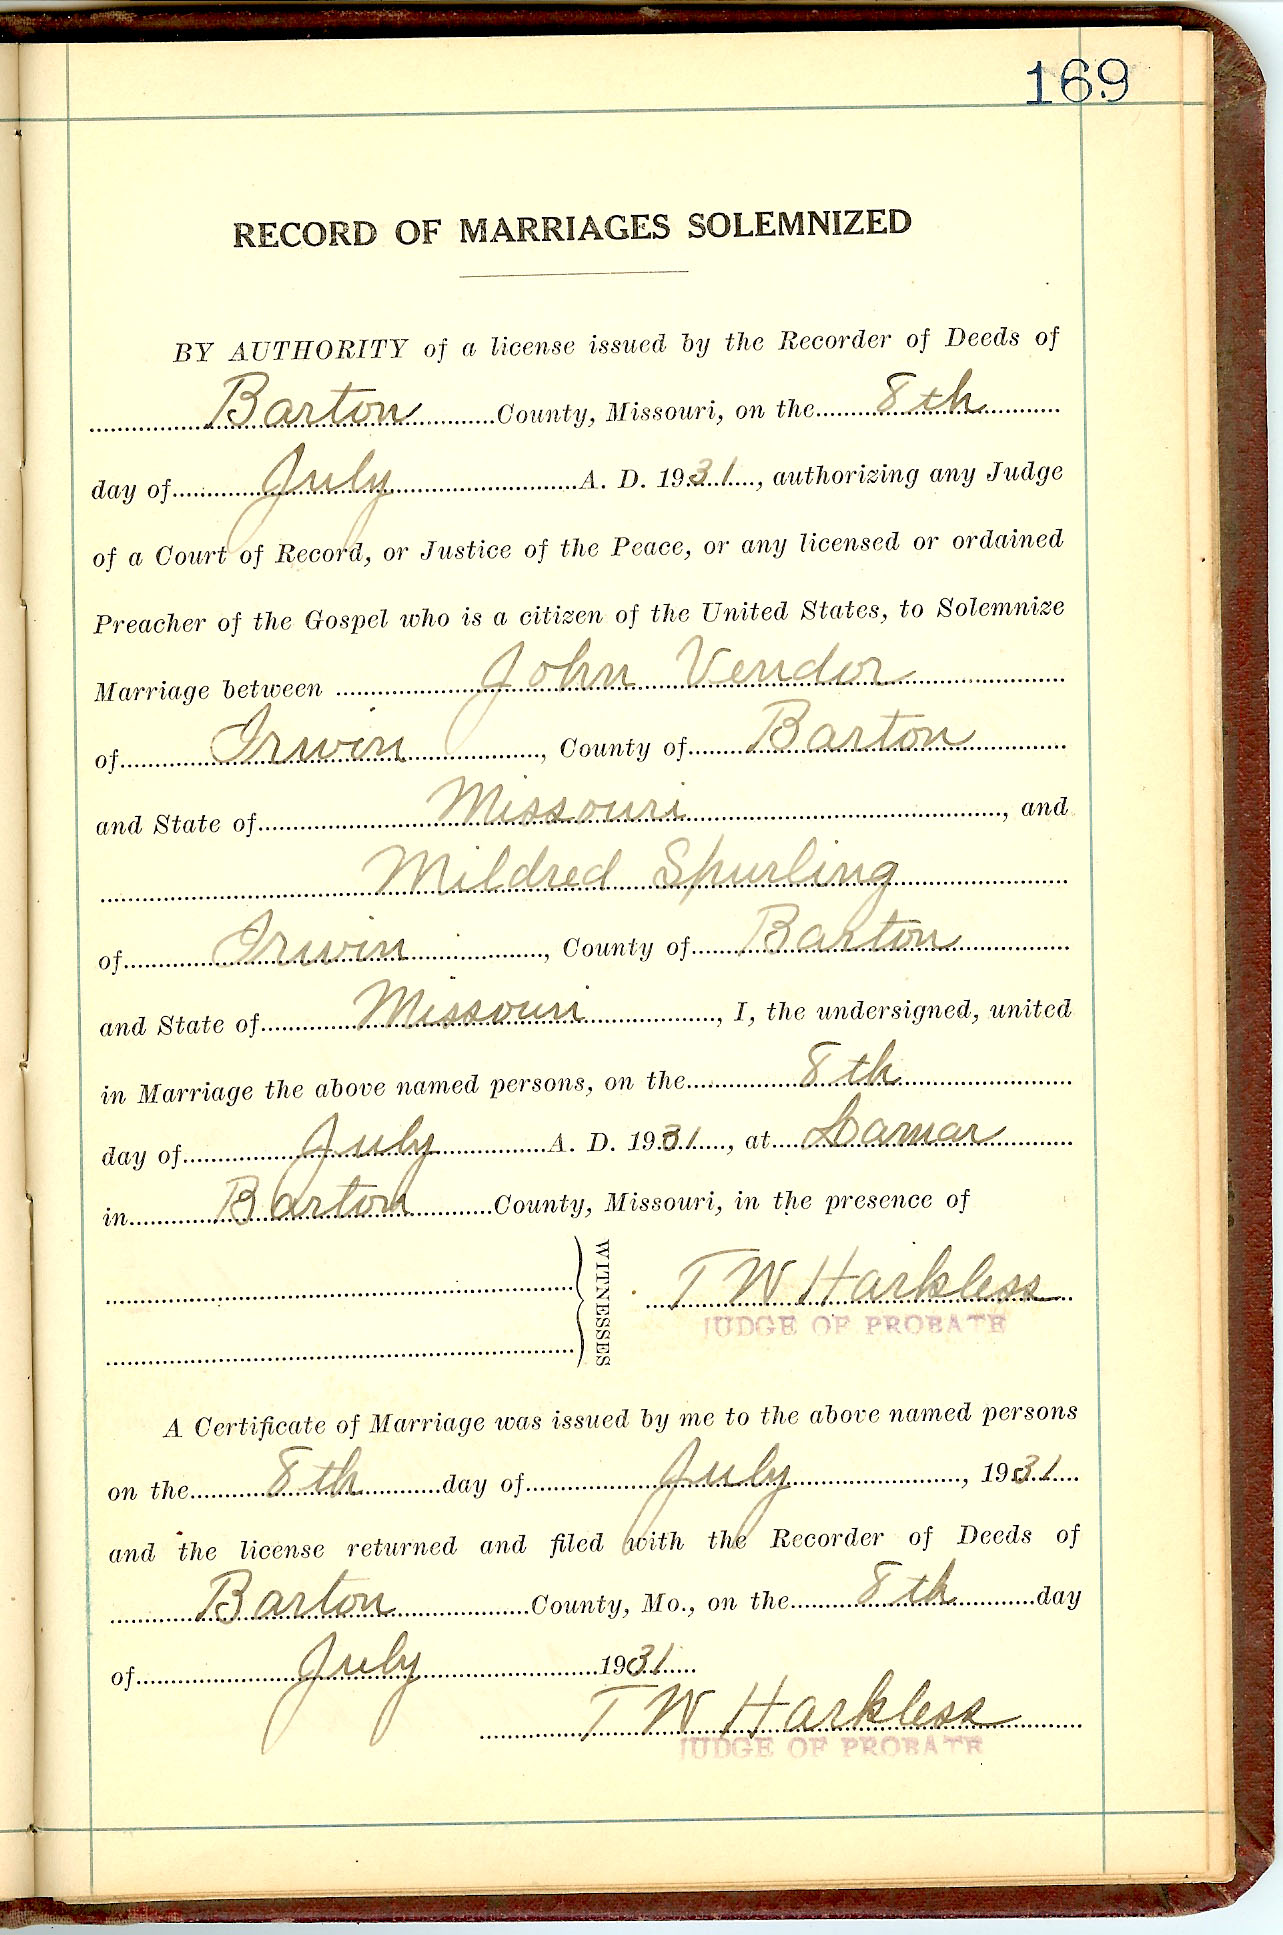 169
RECORD OF MARRIAGES SOLEMNIZED
BY AUTHORITY of a license issued by the Recorder of Deeds of
Barton County, Missouri, on the 8th
day of July A. D. 1931, authorizing any Judge
of a Court of Record, or Justice of the Peace, or any licensed or ordained
Preacher of the Gospel who is a citizen of the United States, to Solemnize
Marriage between John Vendor
of Irwin, County of Barton
and State of Missouri, and
Mildred Spurling
of Irwin, County of Barton
and State of Missouri, I, the undersigned, united
in Marriage the above named persons, on the 8th
day of July A. D. 1931, at Lamar
in Barton County, Missouri, in the presence of
WITNESSES
T W Harkless
JUDGE OF PROBATE
A Certificate of Marriage was issued by me to the above named persons
on the 8th day of July, 1931
and the license returned and filed with the Recorder of Deeds of
Barton County, Mo., on the 8th day
of July 1931
T W Harkless
JUDGE OF PROBATE